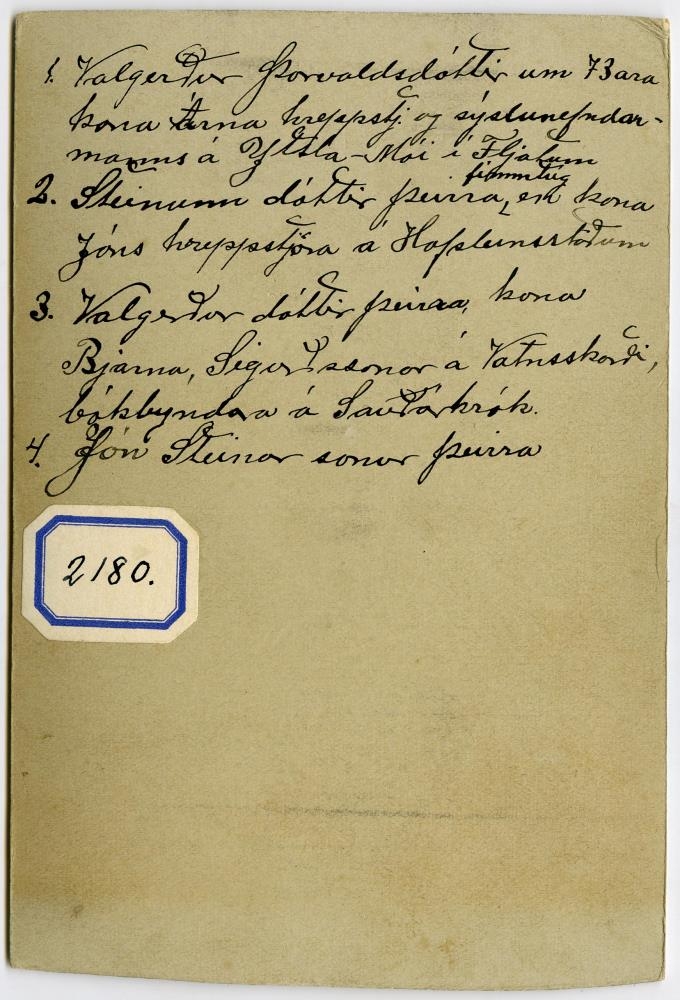 1. Valgerður Þorvaldsdóttir um 73 ara
kona Árna hreppstj. og sýslunefndar-
manns á Yztla-Mói í Fljótum
fimmtug
2. Steinunn dóttir þeirra, en kona
Jóns hreppstjóra á Hafsteinsstöðum
3. Valgerður dóttir þeirra, kona
Bjarna, Sigurðssonar á Vatnsskarði,
bókbyndara á Sauðárkrók.
4. Jón Steinar sonur þeirra
2180.